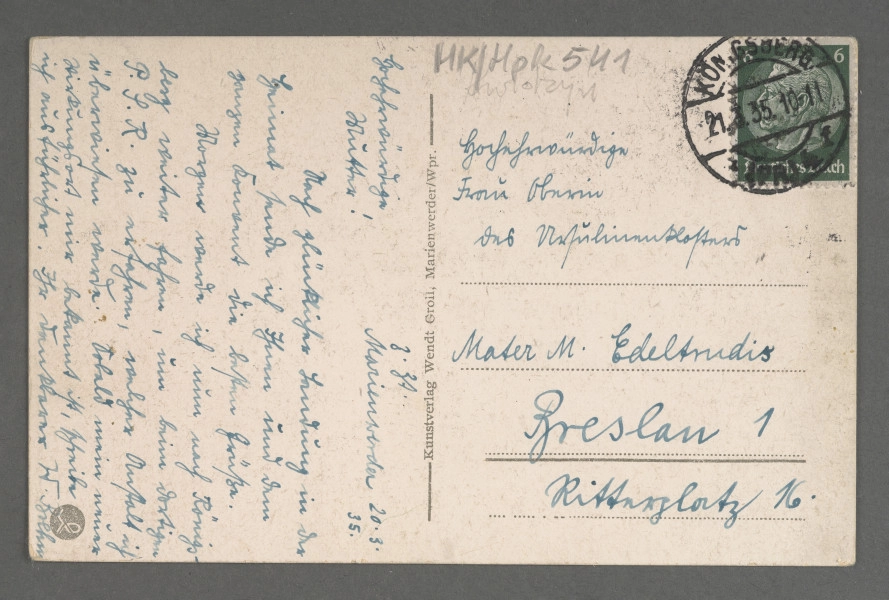 HK/Hpk 541
KÖNIGSBERG
21.3.35. 10-11
6
Deutsches Reich
z. Zt. Marienwerder 20.3.
35.
Hochehrwürdige
Mutter!
Nach glücklicher Landung in der
Heimat sende ich Ihnen und dem
ganzen Konvent die besten Grüße.
Morgen werde ich nun nach Königs-
berg weiter fahren, um beim dortigen
P.S.K. zu erfahren, welcher Anstalt ich
überwiesen werde. Sobald mein neuer
Wirkungsort mir bekannt ist, schreibe
ich ausführlicher. Ihr dankbarer
Kunstverlag Wendt Groll, Marienwerder/Wpr.
Hochehrwürdige
Frau Oberin
des Ursulinenklosters
Mater M. Edeltrudis
Breslau 1
Ritterplatz 16.